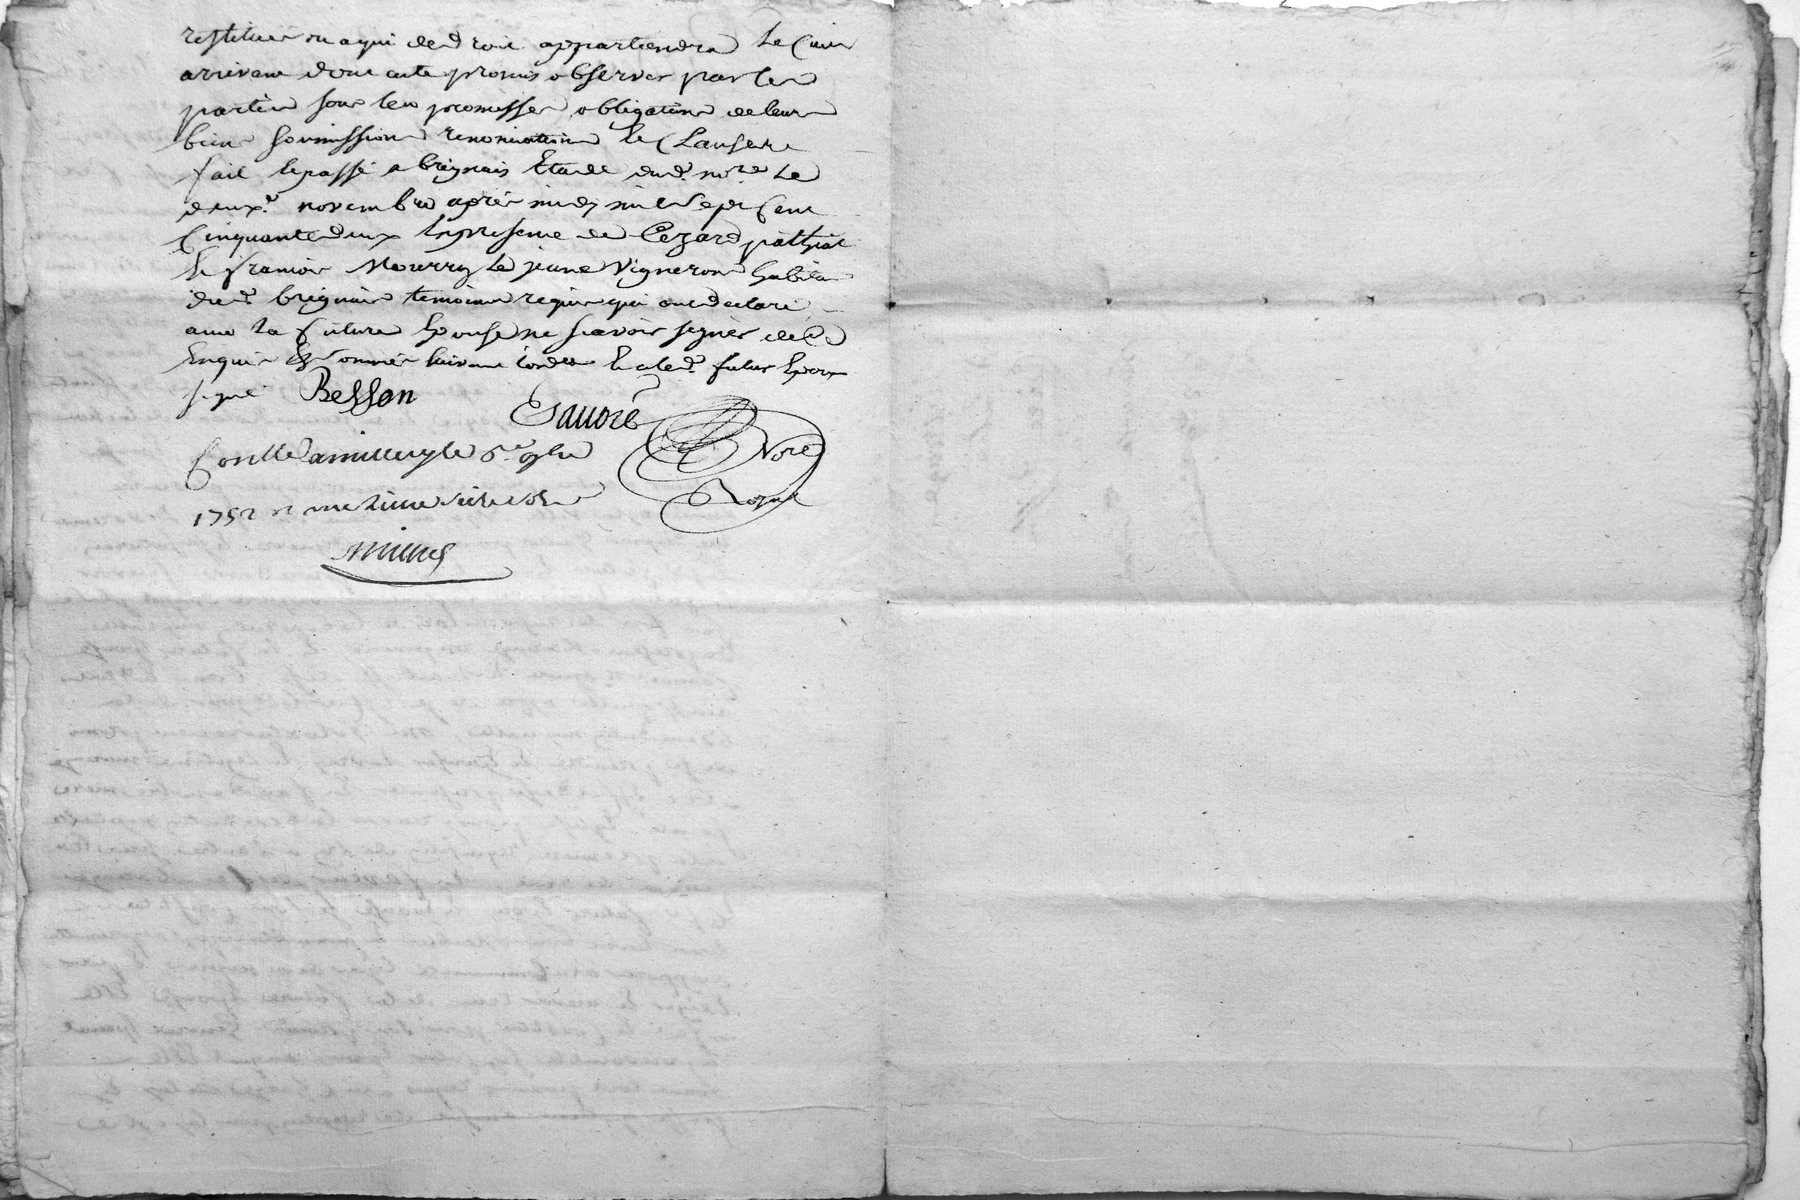 restituer ou a qui de droit appartiendra Le Cas
arrivant dont acte promis observer par les
parties sous leurs promesses obligations de leurs
biens soumissions renonciations et Clauses
fait et passé a brignais Etude dud. nore Le
deuxe novembre après midy mil sept Cent
Cinquante deux En presence de Cezard pathiat
et francois Nourry Le jeune Vigneron habitans
dud. brignais temoins requis qui ont declaré
avec La future Epouse ne scavoir signer de ce
Enquis et sommés suivant lord. et a led. futur Epoux
signé Besson
Savoré
Conllé a millery le 6e 9bre
1752